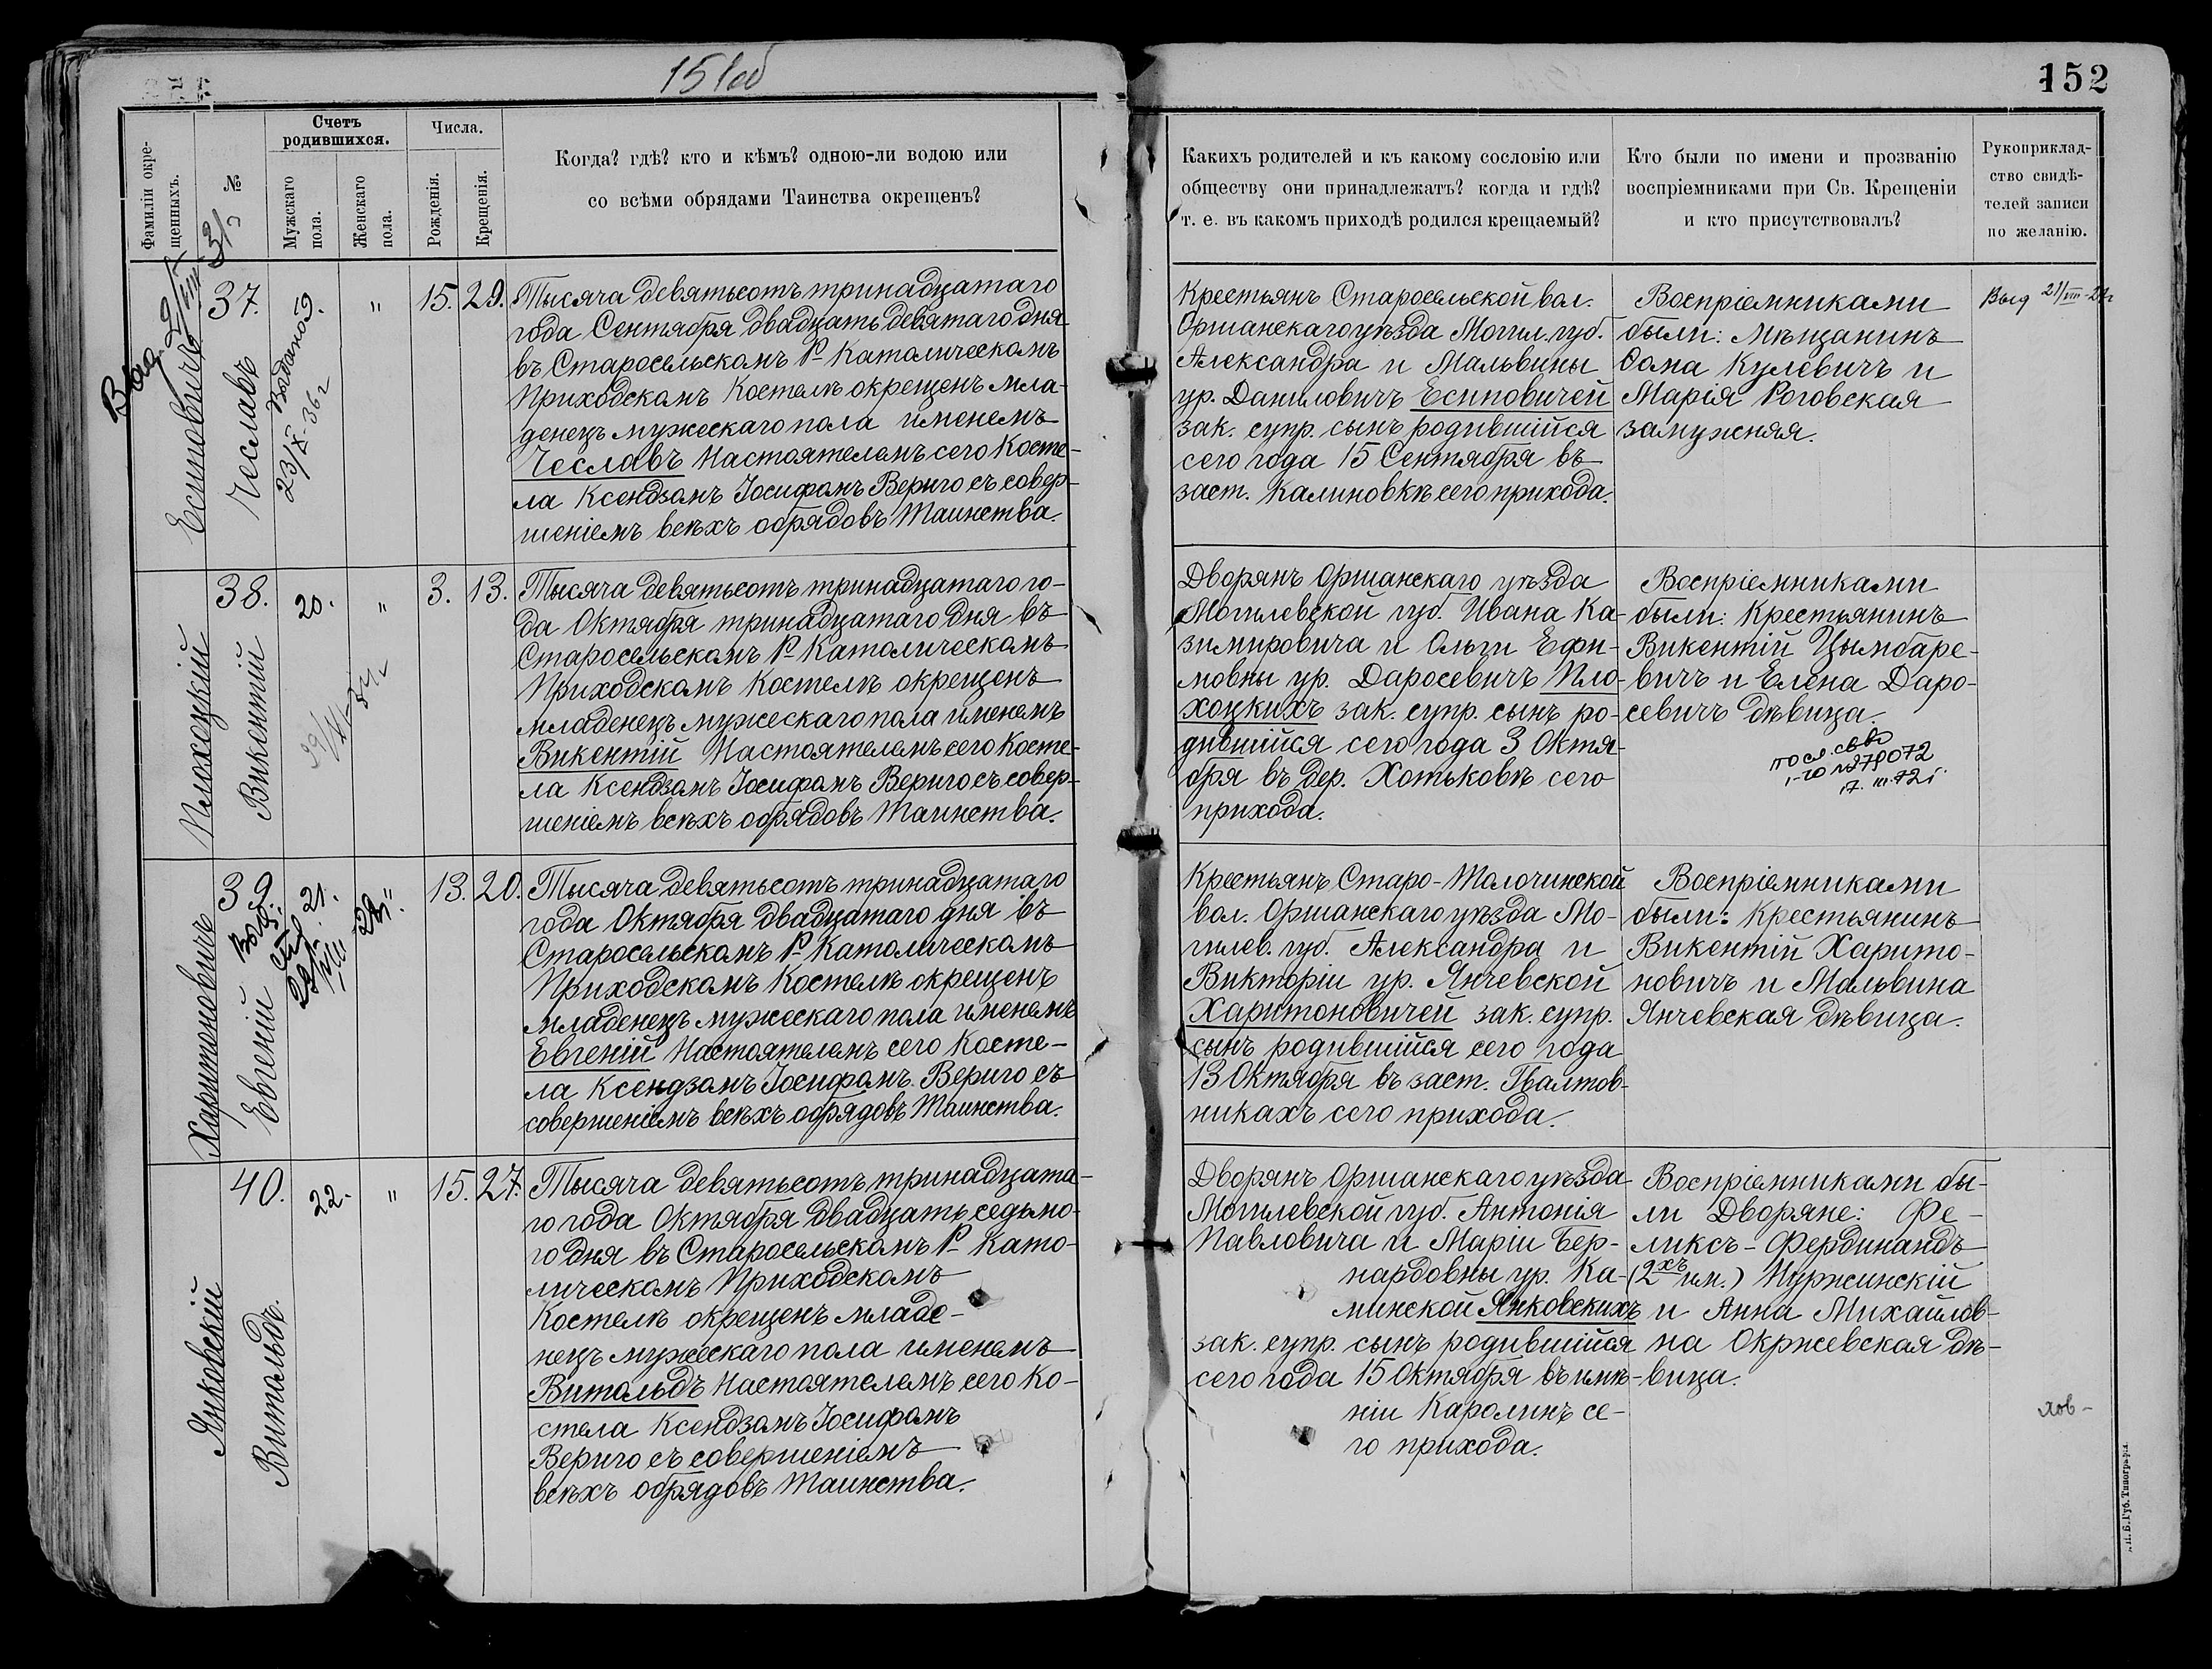 151об
152
Фамиліи окре-
щенныхъ.
№
Счетъ
родившихся.
Мужскаго
пола.
Женскаго
пола.
Числа.
Рожденія.
Крещенія.
Когда? гдѣ? кто и кѣмъ? одною-ли водою или
со всѣми обрядами Таинства окрещенъ?
Какихъ родителей и къ какому сословію или
обществу они принадлежатъ? когда и гдѣ?
т. е. въ какомъ приходѣ родился крещаемый?
Кто были по имени и прозванію
воспріемниками при Св. Крещеніи
и кто присутствовалъ?
Рукоприклад-
ство свидѣ-
телей записи
по желанію.
Есиповичъ
Чеславъ
37.
19.
Выдано
23/IX-36г
"
15.
29.
Тысяча девятьсотъ тринадцатаго
года Сентября двадцать девятаго дня
въ Старосельскомъ Р-Католическомъ
Приходскомъ Костелѣ окрещенъ мла-
денецъ мужескаго пола именемъ
Чеславъ Настоятелемъ сего Косте-
ла Ксендзомъ Іосифомъ Вериго съ совер-
шеніемъ всѣхъ обрядовъ Таинства.
Крестьянъ Старосельской вол.
Оршанскаго уѣзда Могил. губ.
Александра и Мальвины
ур. Даниловичъ Есиповичей
зак. супр. сынъ родившійся
сего года 15 Сентября въ
заст. Калиновкѣ сего прихода.
Воспріемниками
были: Мѣщанинъ
Ѳома Кулевичъ и
Марія Роговская
замужняя.
Выд 21/VIII-
Плохоцкій
Викентій
38.
20.
"
3.
13.
Тысяча девятьсотъ тринадцатаго го-
да Октября тринадцатаго дня въ
Старосельскомъ Р-Католическомъ
Приходскомъ Костелѣ окрещенъ
младенецъ мужескаго пола именемъ
Викентій Настоятелемъ сего Косте-
ла Ксендзомъ Іосифомъ Вериго съ совер-
шеніемъ всѣхъ обрядовъ Таинства.
Дворянъ Оршанскаго уѣзда
Могилевской губ. Ивана Ка-
зимировича и Ольги Ефи-
мовны ур. Даросевичъ Пло-
хоцкихъ зак. супр. сынъ ро-
дившійся сего года 3 Октя-
бря въ дер. Хотьковѣ сего
прихода.
Воспріемниками
были: Крестьянинъ
Викентій Цымбаре-
вичъ и Елена Даро-
севичъ дѣвица.
Харитоновичъ
Евгеній
39.
21.
"
13.
20.
Тысяча девятьсотъ тринадцатаго
года Октября двадцатаго дня въ
Старосельскомъ Р-Католическомъ
Приходскомъ Костелѣ окрещенъ
младенецъ мужескаго пола именемъ
Евгеній Настоятелемъ сего Косте-
ла Ксендзомъ Іосифомъ Вериго съ
совершеніемъ всѣхъ обрядовъ Таинства.
Крестьянъ Старо-Толочинской
вол. Оршанскаго уѣзда Мо-
гилев. губ. Александра и
Викторіи ур. Янчевской
Харитоновичей зак. супр.
сынъ родившійся сего года
13 Октября въ заст. Гвалтов-
никахъ сего прихода.
Воспріемниками
были: Крестьянинъ
Викентій Харито-
новичъ и Мальвина
Янчевская дѣвица.
Янковскій
Витольдъ.
40.
22.
"
15.
27.
Тысяча девятьсотъ тринадцата-
го года Октября двадцать седьмо-
го дня въ Старосельскомъ Р-Като-
лическомъ Приходскомъ
Костелѣ окрещенъ младе-
нецъ мужескаго пола именемъ
Витольдъ Настоятелемъ сего Ко-
стела Ксендзомъ Іосифомъ
Вериго съ совершеніемъ
всѣхъ обрядовъ Таинства.
Дворянъ Оршанскаго уѣзда
Могилевской губ. Антонія
Павловича и Маріи Бер-
нардовны ур. Ка-
минской Янковскихъ
зак. супр. сынъ родившійся
сего года 15 Октября въ имѣ-
ніи Каролинъ се-
го прихода.
Воспріемниками бы-
ли Дворяне: Фе-
ликсъ-Фердинандъ
(2хъ им.) Нуржинскій
и Анна Михайлов-
на Окржевская дѣ-
вица.